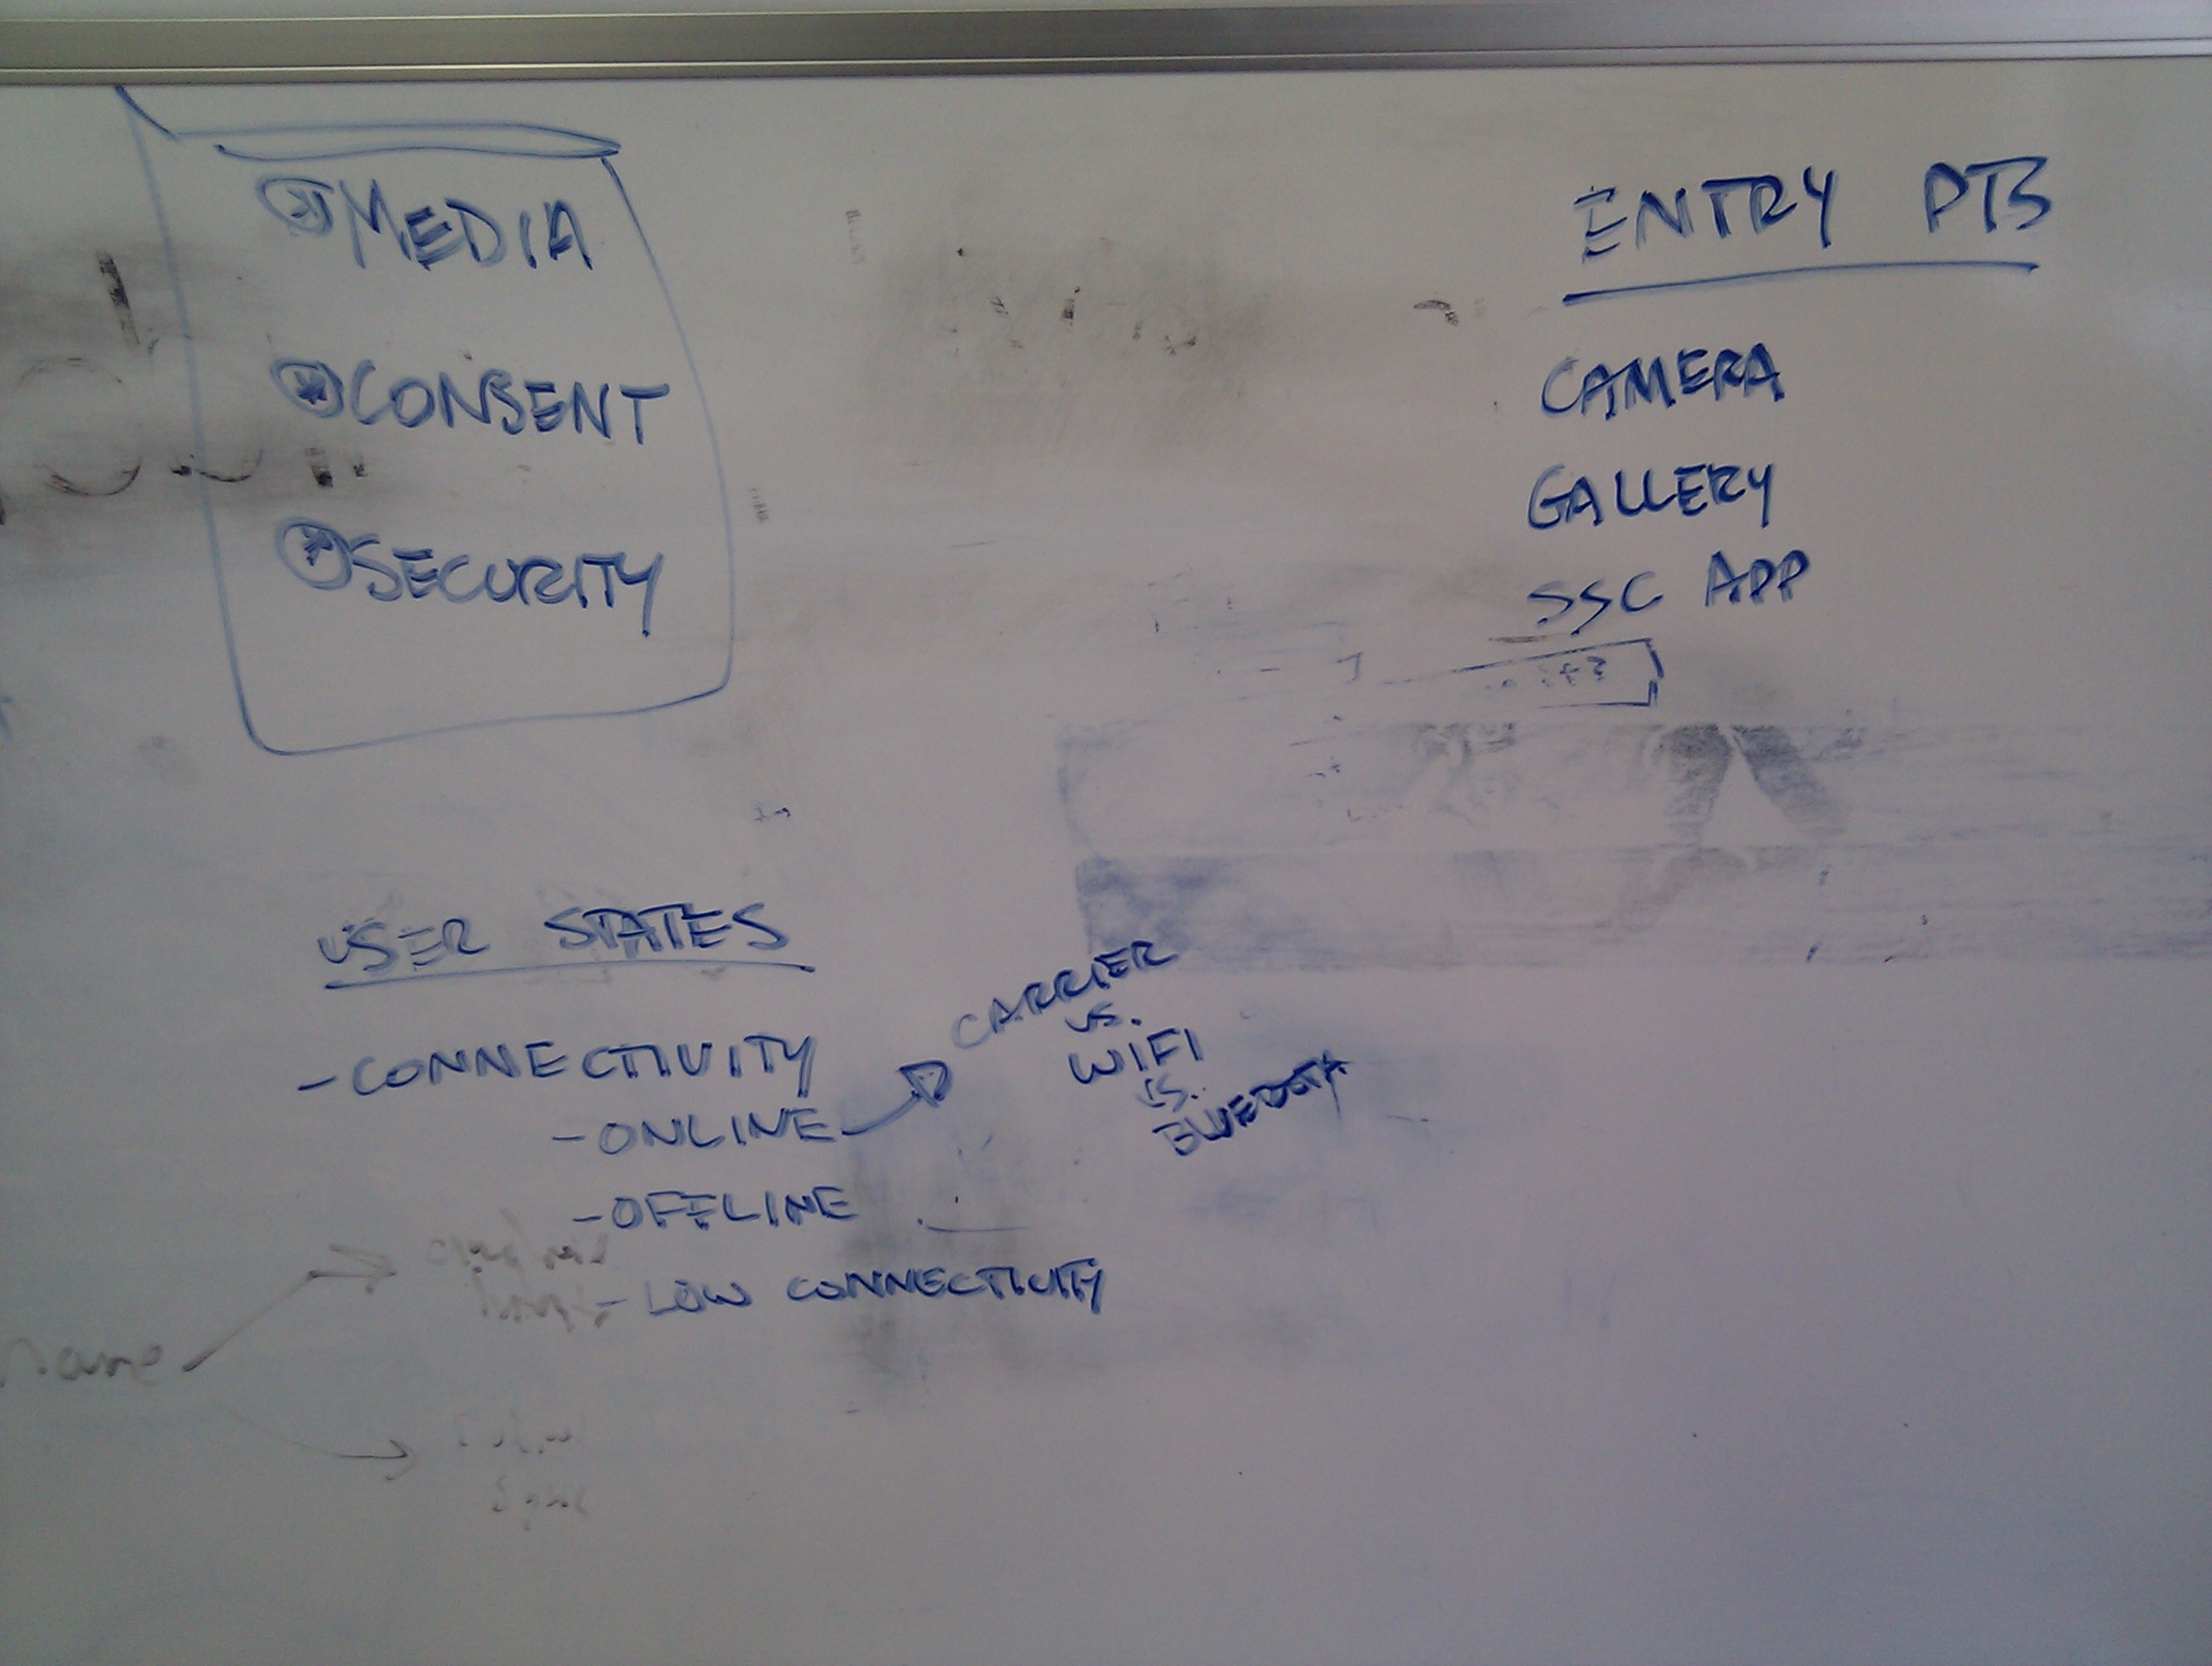 MEDIA
CONSENT
SECURITY
ENTRY PTS
CAMERA
GALLERY
SSC APP
USER STATES
- CONNECTIVITY
- ONLINE
CARRIER
VS.
WIFI
VS.
- OFFLINE
- LOW CONNECTIVITY
name